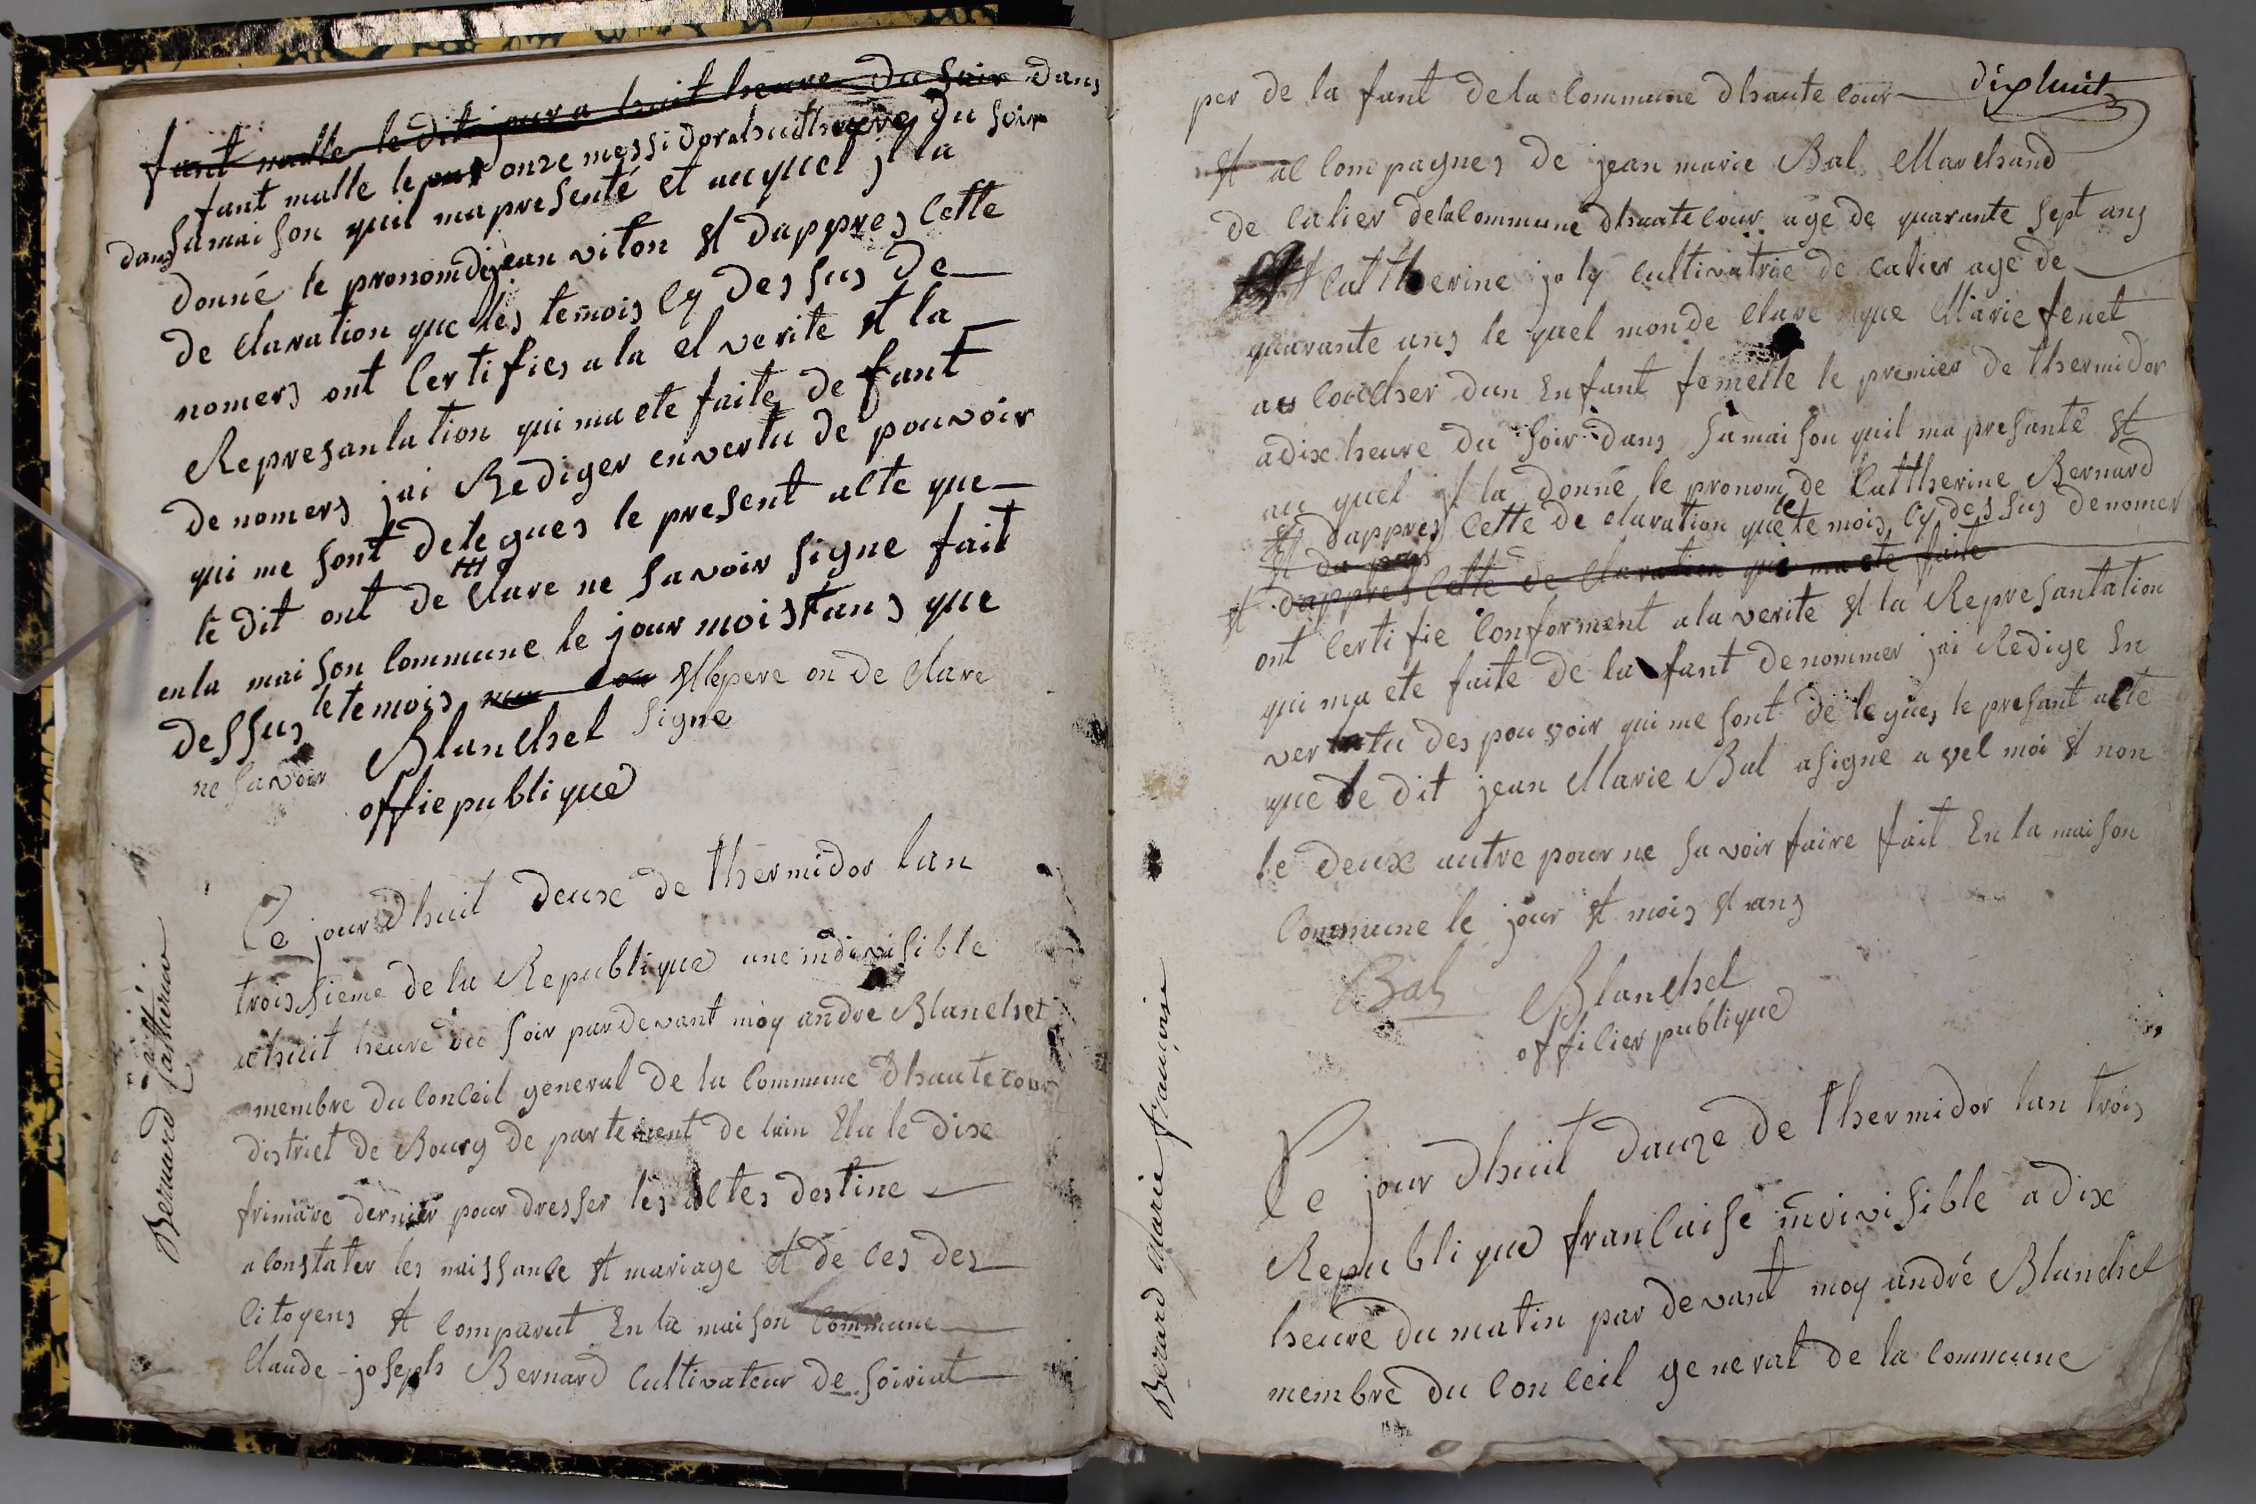 fant malle le dit jour a huit heure du soir dans
fant malle le onze messidor a huit heure du soir
dans sa maison quil ma presenté et auquel jl la
donné le pronom de jean viton et dappres cette
de claration que les temois cy dessus de
nomers ont certifies a la el verite et la
Represantation qui ma ete faite de fant
de nomers jai Rediger en vertu de pouvoir
qui me sont delegues le present acte que
le dit ont de clare ne savoir signe fait
en la maison commune le jour mois et ans que
dessus le temois et le pere on de clare
ne savoir Blanchet signe
offie publique
Bernard Catherine
Ce jourdhuit deuxe de thermidor lan
troissieme de la Republique une indivisible
a huit heure du soir par devant moy andre Blanchet
membre du Conceil general de la Commune dhautecour
district de Bourg de partement de lain Elu le dixe
frimaire dernier pour dresser les actes destine
a constater les naissance et mariage et de ces des
citoyens et comparut En la maison Commune
Claude joseph Bernard cultivateur de soiriat
per de la fant de la Commune dhautecour
dixhuit
et ac compagnes de jean marie Bal Marchand
de calier de la Commune dhautecour age de quarante sept ans
et Cattherine joly cultivatrice de calier age de
quarante ans le quel mon de clare que Marie fenet
au coucher dun Enfant femelle le premier de thermidor
a dix heure du soir dans sa maison quil ma presanté et
au quel jl la donné le pronom de Cattherine Bernard
et dappres cette de claration que le temois cy dessus denomer
et du
et dappres cette de claration qui ma ete faite
ont certifie conforment a la verite et la Represantation
qui ma ete faite de la fant denommer jai Redige En
vertu des pouvoir qui me sont de legues le presant acte
que le dit jean Marie Bal a signe a vec moi et non
le deux autre pour ne savoir faire fait En la maison
Commune le jour et mois et ans
Bal Blanchet
officier publique
Berard Marie françoise
Ce jour dhuit douze de thermidor lan trois
Republique francaise indivisible a dix
heure du matin par devant moy andré Blanchet
membre du conceil general de la commune